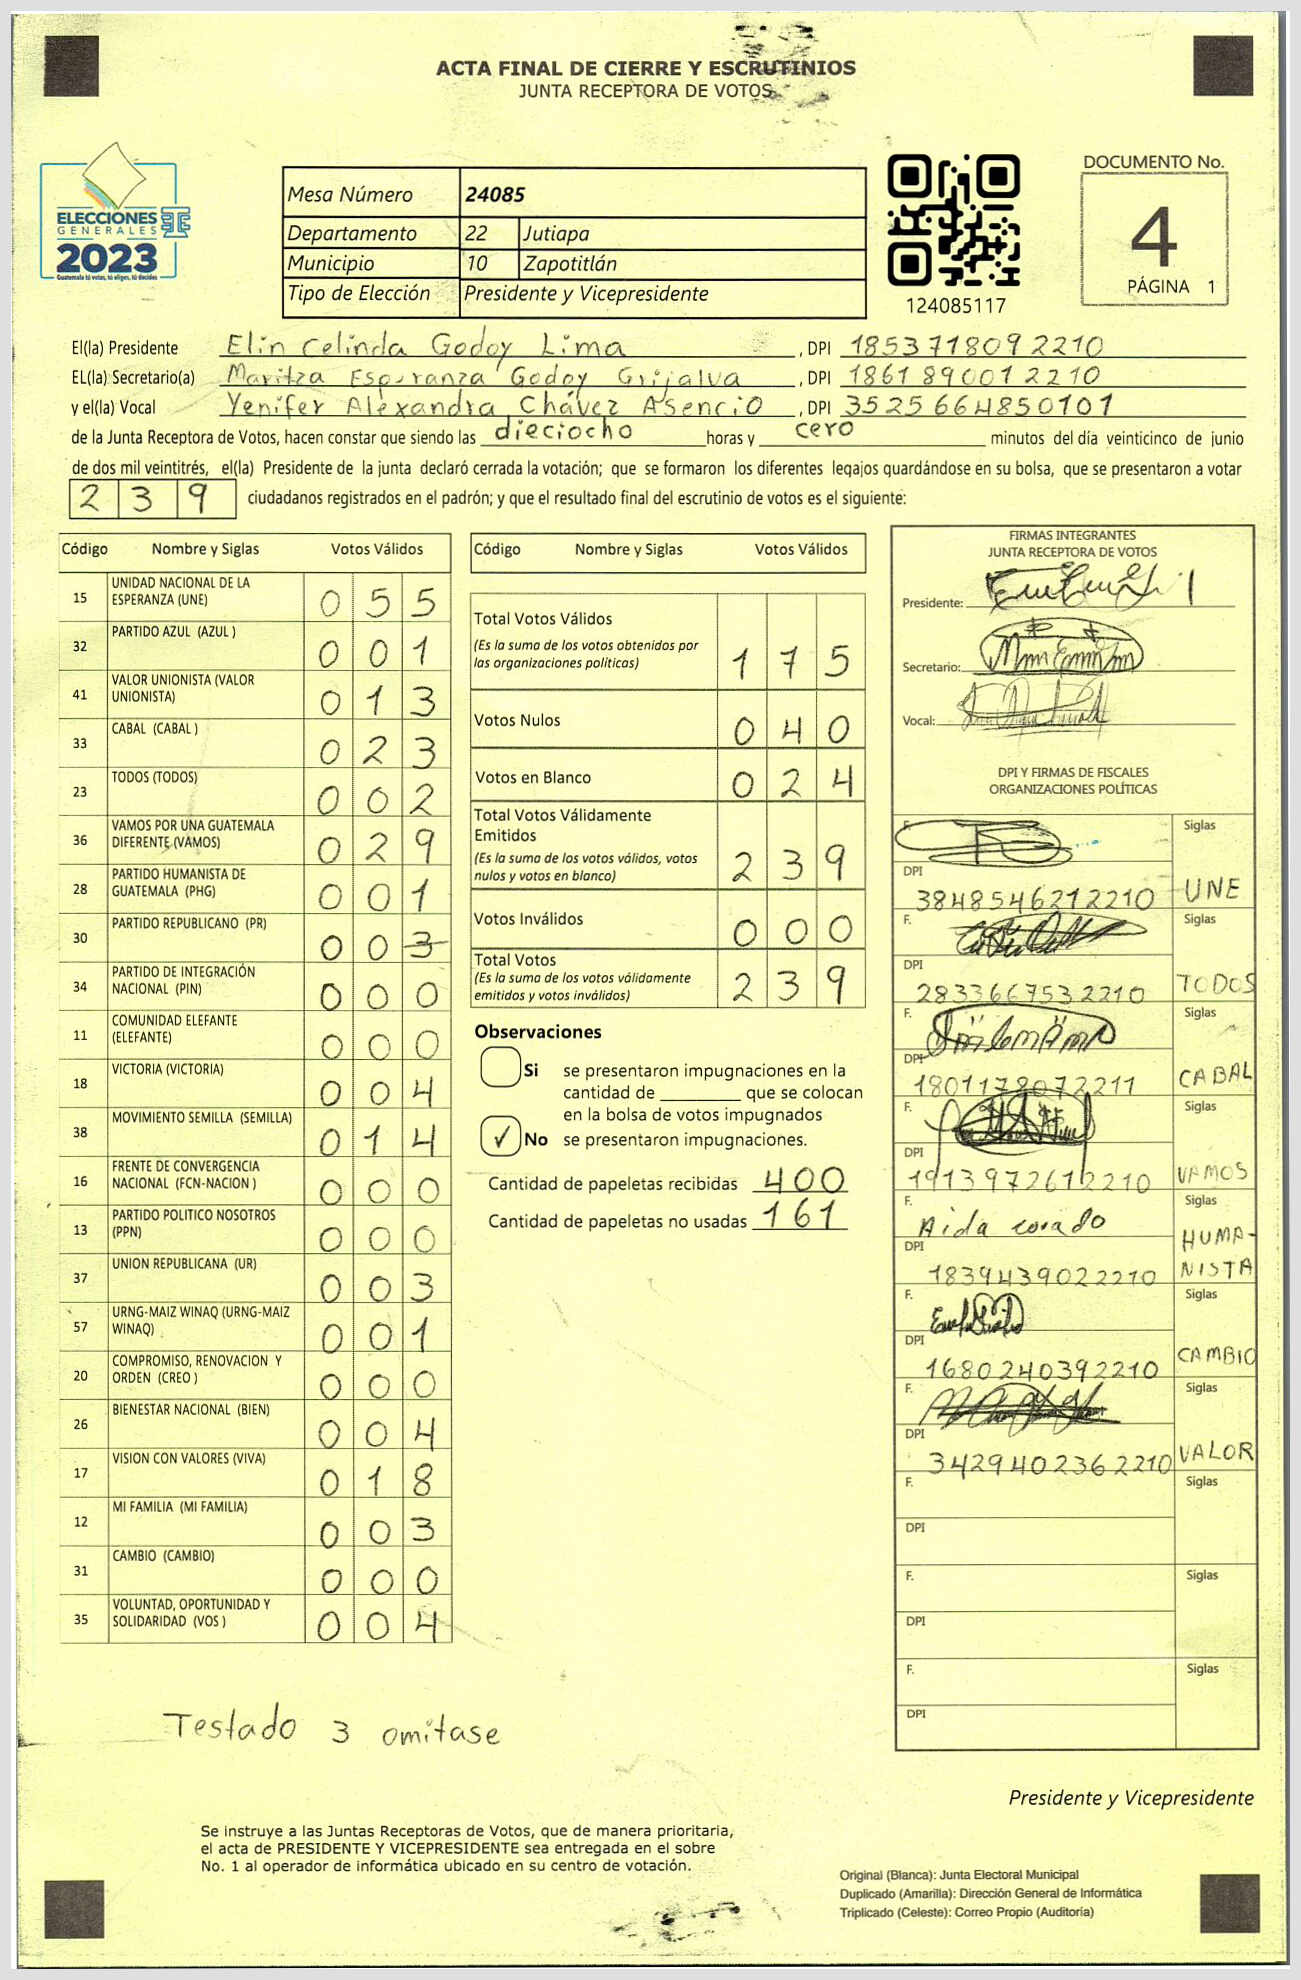 ACTA FINAL DE CIERRE Y ESCRUTINIOS
JUNTA RECEPTORA DE VOTOS
ELECCIONES
GENERALES
2023
Guatemala tú votas, tú eliges, tú decides
Mesa Número 24085
Departamento 22 Jutiapa
Municipio 10 Zapotitlán
Tipo de Elección Presidente y Vicepresidente
124085117
DOCUMENTO No.
4
PÁGINA 1
El(la) Presidente Elin Celinda Godoy Lima, DPI 1853718092210
EL(la) Secretario(a) Maritza Esperanza Godoy Grijalva, DPI 1861890012210
y el(la) Vocal Yenifer Alexandra Chávez Asencio, DPI 3525664850101
de la Junta Receptora de Votos, hacen constar que siendo las dieciocho horas y cero minutos del día veinticinco de junio
de dos mil veintitrés, el(la) Presidente de la junta declaró cerrada la votación; que se formaron los diferentes legajos guardándose en su bolsa, que se presentaron a votar
239 ciudadanos registrados en el padrón; y que el resultado final del escrutinio de votos es el siguiente:
Código Nombre y Siglas Votos Válidos
15 UNIDAD NACIONAL DE LA ESPERANZA (UNE) 055
32 PARTIDO AZUL (AZUL ) 001
41 VALOR UNIONISTA (VALOR UNIONISTA) 013
33 CABAL (CABAL ) 023
23 TODOS (TODOS) 002
36 VAMOS POR UNA GUATEMALA DIFERENTE (VAMOS) 029
28 PARTIDO HUMANISTA DE GUATEMALA (PHG) 001
30 PARTIDO REPUBLICANO (PR) 003
34 PARTIDO DE INTEGRACIÓN NACIONAL (PIN) 000
11 COMUNIDAD ELEFANTE (ELEFANTE) 000
18 VICTORIA (VICTORIA) 004
38 MOVIMIENTO SEMILLA (SEMILLA) 014
16 FRENTE DE CONVERGENCIA NACIONAL (FCN-NACION ) 000
13 PARTIDO POLITICO NOSOTROS (PPN) 000
37 UNION REPUBLICANA (UR) 003
57 URNG-MAIZ WINAQ (URNG-MAIZ WINAQ) 001
20 COMPROMISO, RENOVACION Y ORDEN (CREO ) 000
26 BIENESTAR NACIONAL (BIEN) 004
17 VISION CON VALORES (VIVA) 018
12 MI FAMILIA (MI FAMILIA) 003
31 CAMBIO (CAMBIO) 000
35 VOLUNTAD, OPORTUNIDAD Y SOLIDARIDAD (VOS ) 004
Testado 3 omitase
Código Nombre y Siglas Votos Válidos
Total Votos Válidos
(Es la suma de los votos obtenidos por
las organizaciones políticas) 175
Votos Nulos 040
Votos en Blanco 024
Total Votos Válidamente
Emitidos
(Es la suma de los votos válidos, votos
nulos y votos en blanco) 239
Votos Inválidos 000
Total Votos
(Es la suma de los votos válidamente
emitidos y votos inválidos) 239
Observaciones
Si se presentaron impugnaciones en la
cantidad de ________ que se colocan
en la bolsa de votos impugnados
✓ No se presentaron impugnaciones.
Cantidad de papeletas recibidas 400
Cantidad de papeletas no usadas 161
FIRMAS INTEGRANTES
JUNTA RECEPTORA DE VOTOS
Presidente:
Secretario:
Vocal:
DPI Y FIRMAS DE FISCALES
ORGANIZACIONES POLÍTICAS
F. Siglas
DPI 3848546212210 UNE
F. Siglas
DPI 2833667532210 TODOS
F. Siglas
DPI 1801178072211 CABAL
F. Siglas
DPI 1913972612210 VAMOS
F. Aida corado Siglas
DPI 1839439022210 HUMA-
NISTA
F. Siglas
DPI 1680240392210 CAMBIO
F. Siglas
DPI 3429402362210 VALOR
F. Siglas
DPI
F. Siglas
DPI
F. Siglas
DPI
Presidente y Vicepresidente
Se instruye a las Juntas Receptoras de Votos, que de manera prioritaria,
el acta de PRESIDENTE Y VICEPRESIDENTE sea entregada en el sobre
No. 1 al operador de informática ubicado en su centro de votación.
Original (Blanca): Junta Electoral Municipal
Duplicado (Amarilla): Dirección General de Informática
Triplicado (Celeste): Correo Propio (Auditoría)